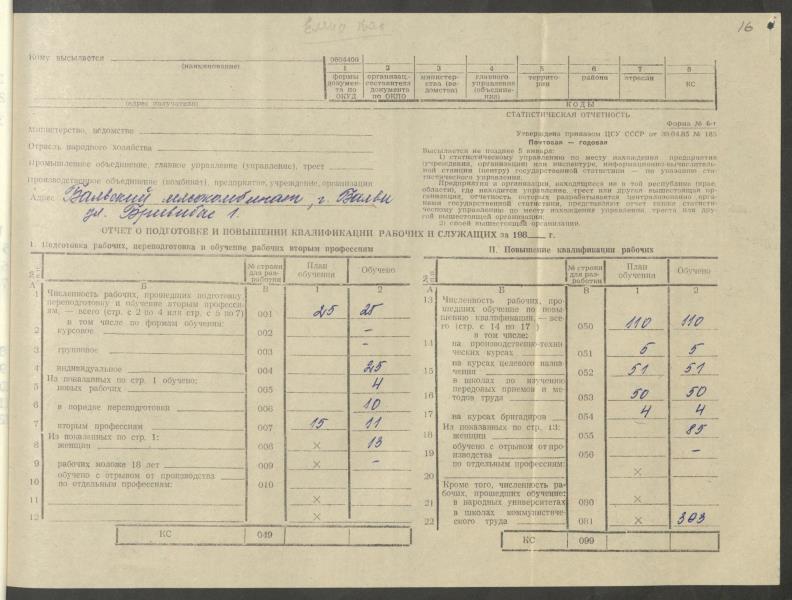 16
Кому высылается
(наименование)
0604400
1 2 3 4 5 6 7 8
формы документа по ОКУД
организац.-составителя документа по ОКПО
министерства (ведомства)
главного управления (объединения)
территории
района
отрасли
КС
(адрес получателя)
КОДЫ
СТАТИСТИЧЕСКАЯ ОТЧЕТНОСТЬ
Форма № 6-т
Министерство, ведомство
Утверждена приказом ЦСУ СССР от 30.04.85 № 185
Почтовая — годовая
Отрасль народного хозяйства
Высылается не позднее 5 января:
1) статистическому управлению по месту нахождения предприятия
(учреждения, организации) или институте, информационно-вычислитель-
ной станции (центру) государственной статистики — по указанию ста-
тистического управления.
Промышленное объединение, главное управление (управление), трест
Производственное объединение (комбинат), предприятие, учреждение, организация
Предприятия и организации, находящиеся не в той республике (крае,
области), где находится управление, трест или другая вышестоящая ор-
ганизация, отчетность которых разрабатывается централизованно орга-
нами государственной статистики, представляют отчет также статисти-
ческому управлению по месту нахождения управления, треста или дру-
гой вышестоящей организации;
2) своей вышестоящей организации.
Адрес Валвский мясокомбинат, г. Валви
ул. Бривибас 1.
ОТЧЕТ О ПОДГОТОВКЕ И ПОВЫШЕНИИ КВАЛИФИКАЦИИ РАБОЧИХ И СЛУЖАЩИХ за 198 г.
I. Подготовка рабочих, переподготовка и обучение рабочих вторым профессиям
№ п.п. № строки для разработки План обучения Обучено
А Б В 1 2
1 Численность рабочих, прошедших подготовку,
переподготовку и обучение вторым професси-
ям, — всего (стр. с 2 по 4 или стр. с 5 по 7) 001 25 25
в том числе по формам обучения:
2 курсовое 002 –
3 групповое 003 –
4 индивидуальное 004 25
Из показанных по стр. 1 обучено:
5 новых рабочих 005 4
6 в порядке переподготовки 006 10
7 вторым профессиям 007 15 11
Из показанных по стр. 1:
8 женщин 008 × 13
9 рабочих моложе 18 лет 009 × –
обучено с отрывом от производства
10 по отдельным профессиям: 010
11 ×
12 ×
КС 049
II. Повышение квалификации рабочих
№ п.п. № строки для разработки План обучения Обучено
А Б В 1 2
13 Численность рабочих, про-
шедших обучение по повы-
шению квалификации, — все-
го (стр. с 14 по 17) 050 110 110
в том числе:
14 на производственно-техни-
ческих курсах 051 5 5
15 на курсах целевого назна-
чения 052 51 51
16 в школах по изучению
передовых приемов и ме-
тодов труда 053 50 50
17 на курсах бригадиров 054 4 4
18 Из показанных по стр. 13:
женщин 055 85
19 обучено с отрывом от про-
изводства 056 –
по отдельным профессиям:
20 ×
Кроме того, численность ра-
бочих, прошедших обучение:
21 в народных университетах 080 ×
22 в школах коммунистиче-
ского труда 081 × 303
КС 099